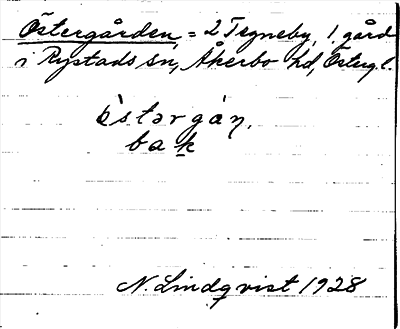 Östergården, = 2 Tegneby, 1 gård
i Rystads sn, Åkerbo hd, Österg. l.
ö̀stərgá̀ɳ,
bak
N. Lindqvist 1928